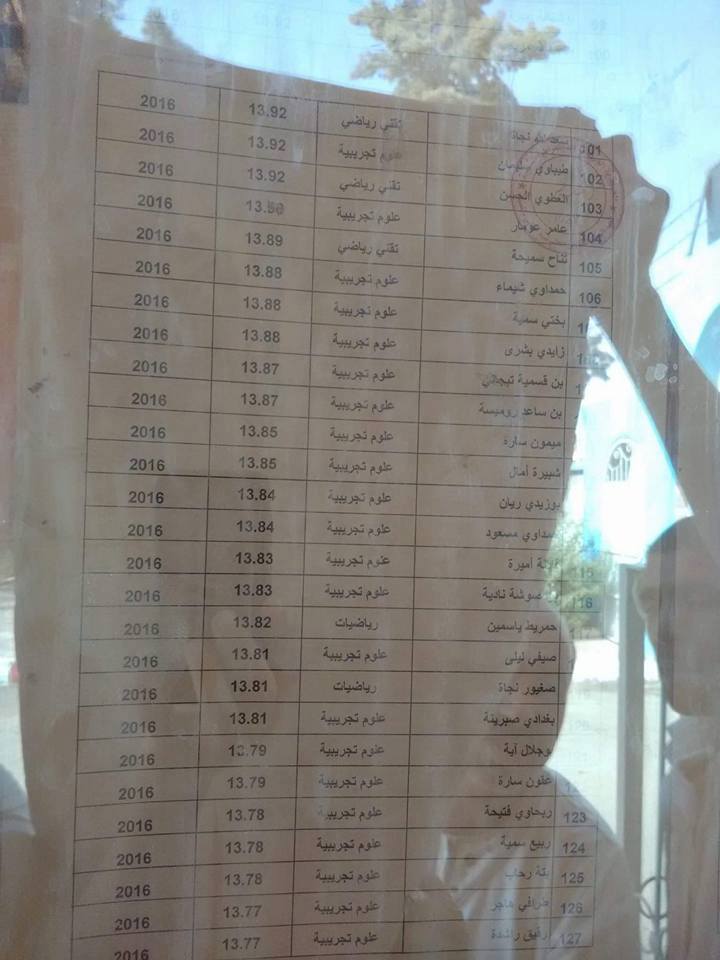 101 نجاة تقني رياضي 13.92 2016
102 طيباوي سليمان علوم تجريبية 13.92 2016
103 العطوي الحسن تقني رياضي 13.92 2016
104 عامر عومار علوم تجريبية 13.90 2016
105 نتاح سميحة تقني رياضي 13.89 2016
106 حمداوي شيماء علوم تجريبية 13.88 2016
بختي سمية علوم تجريبية 13.88 2016
زايدي بشرى علوم تجريبية 13.88 2016
بن قسمية تيجاني علوم تجريبية 13.87 2016
بن ساعد روميسة علوم تجريبية 13.87 2016
ميمون سارة علوم تجريبية 13.85 2016
شبيرة أمال علوم تجريبية 13.85 2016
بوزيدي ريان علوم تجريبية 13.84 2016
مسعود علوم تجريبية 13.84 2016
115 أميرة علوم تجريبية 13.83 2016
116 صوشة نادية علوم تجريبية 13.83 2016
حمريط ياسمين رياضيات 13.82 2016
صيفي ليلى علوم تجريبية 13.81 2016
صغيور نجاة رياضيات 13.81 2016
بغدادي صبرينة علوم تجريبية 13.81 2016
بوجلال آية علوم تجريبية 13.79 2016
عفون سارة علوم تجريبية 13.79 2016
123 ربحاوي فتيحة علوم تجريبية 13.78 2016
124 ربيع سمية علوم تجريبية 13.78 2016
125 بتة رحاب علوم تجريبية 13.78 2016
126 طرافي هاجر علوم تجريبية 13.77 2016
127 رفيق راشدة علوم تجريبية 13.77 2016